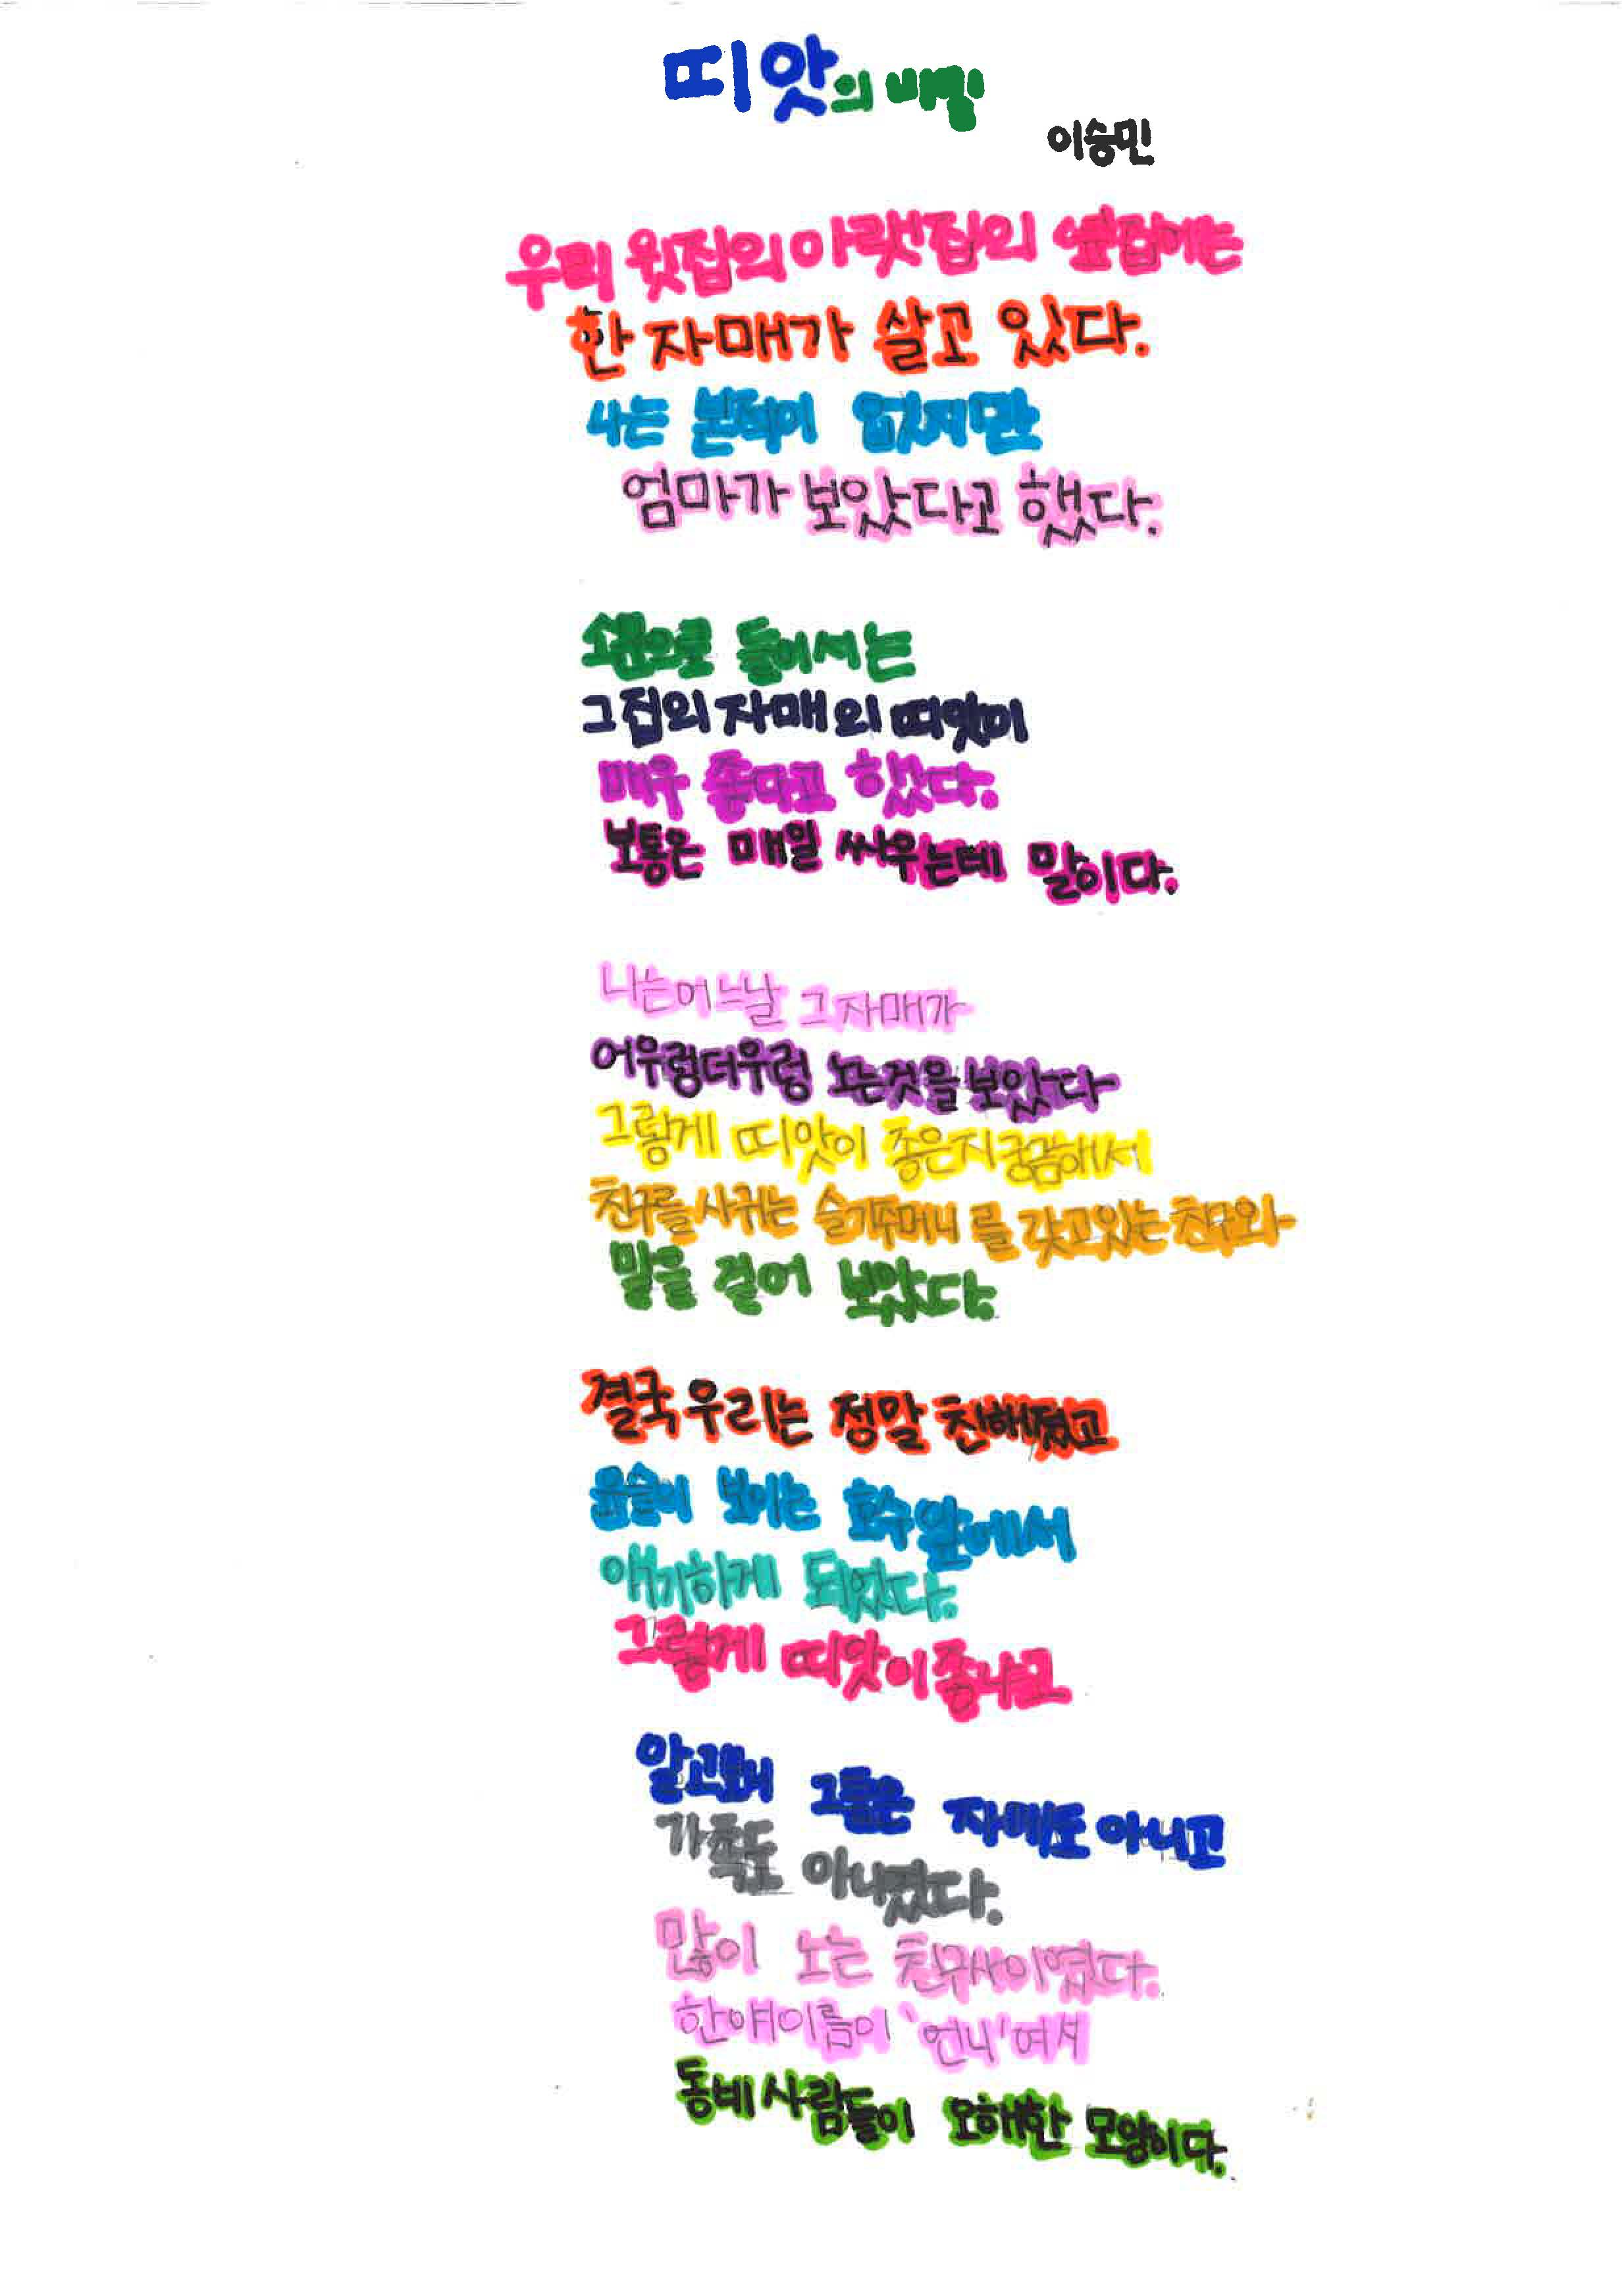 띠앗의 비밀
이승민
우리 윗집의 아랫집의 옆집에는
한 자매가 살고 있다.
나는 본적이 없지만
엄마가 보았다고 했다.
소문으로 들어서는
그집의 자매의 띠앗이
매우 좋다고 했다.
보통은 매일 싸우는데 말이다.
나는 어느날 그 자매가
어우렁더우렁 노는것을 보았다
그렇게 띠앗이 좋은지 궁금해서
친구를 사귀는 슬기주머니를 갖고있는 친구와
말을 걸어 보았다.
결국 우리는 정말 친해졌고
윤슬이 보이는 호수앞에서
얘기하게 되었다.
그렇게 띠앗이 좋냐고
알고보니 그들은 자매도 아니고
가족도 아니였다.
많이 노는 친구사이였다.
한얘이름이 '언니'여서
동네 사람들이 오해한 모양이다.